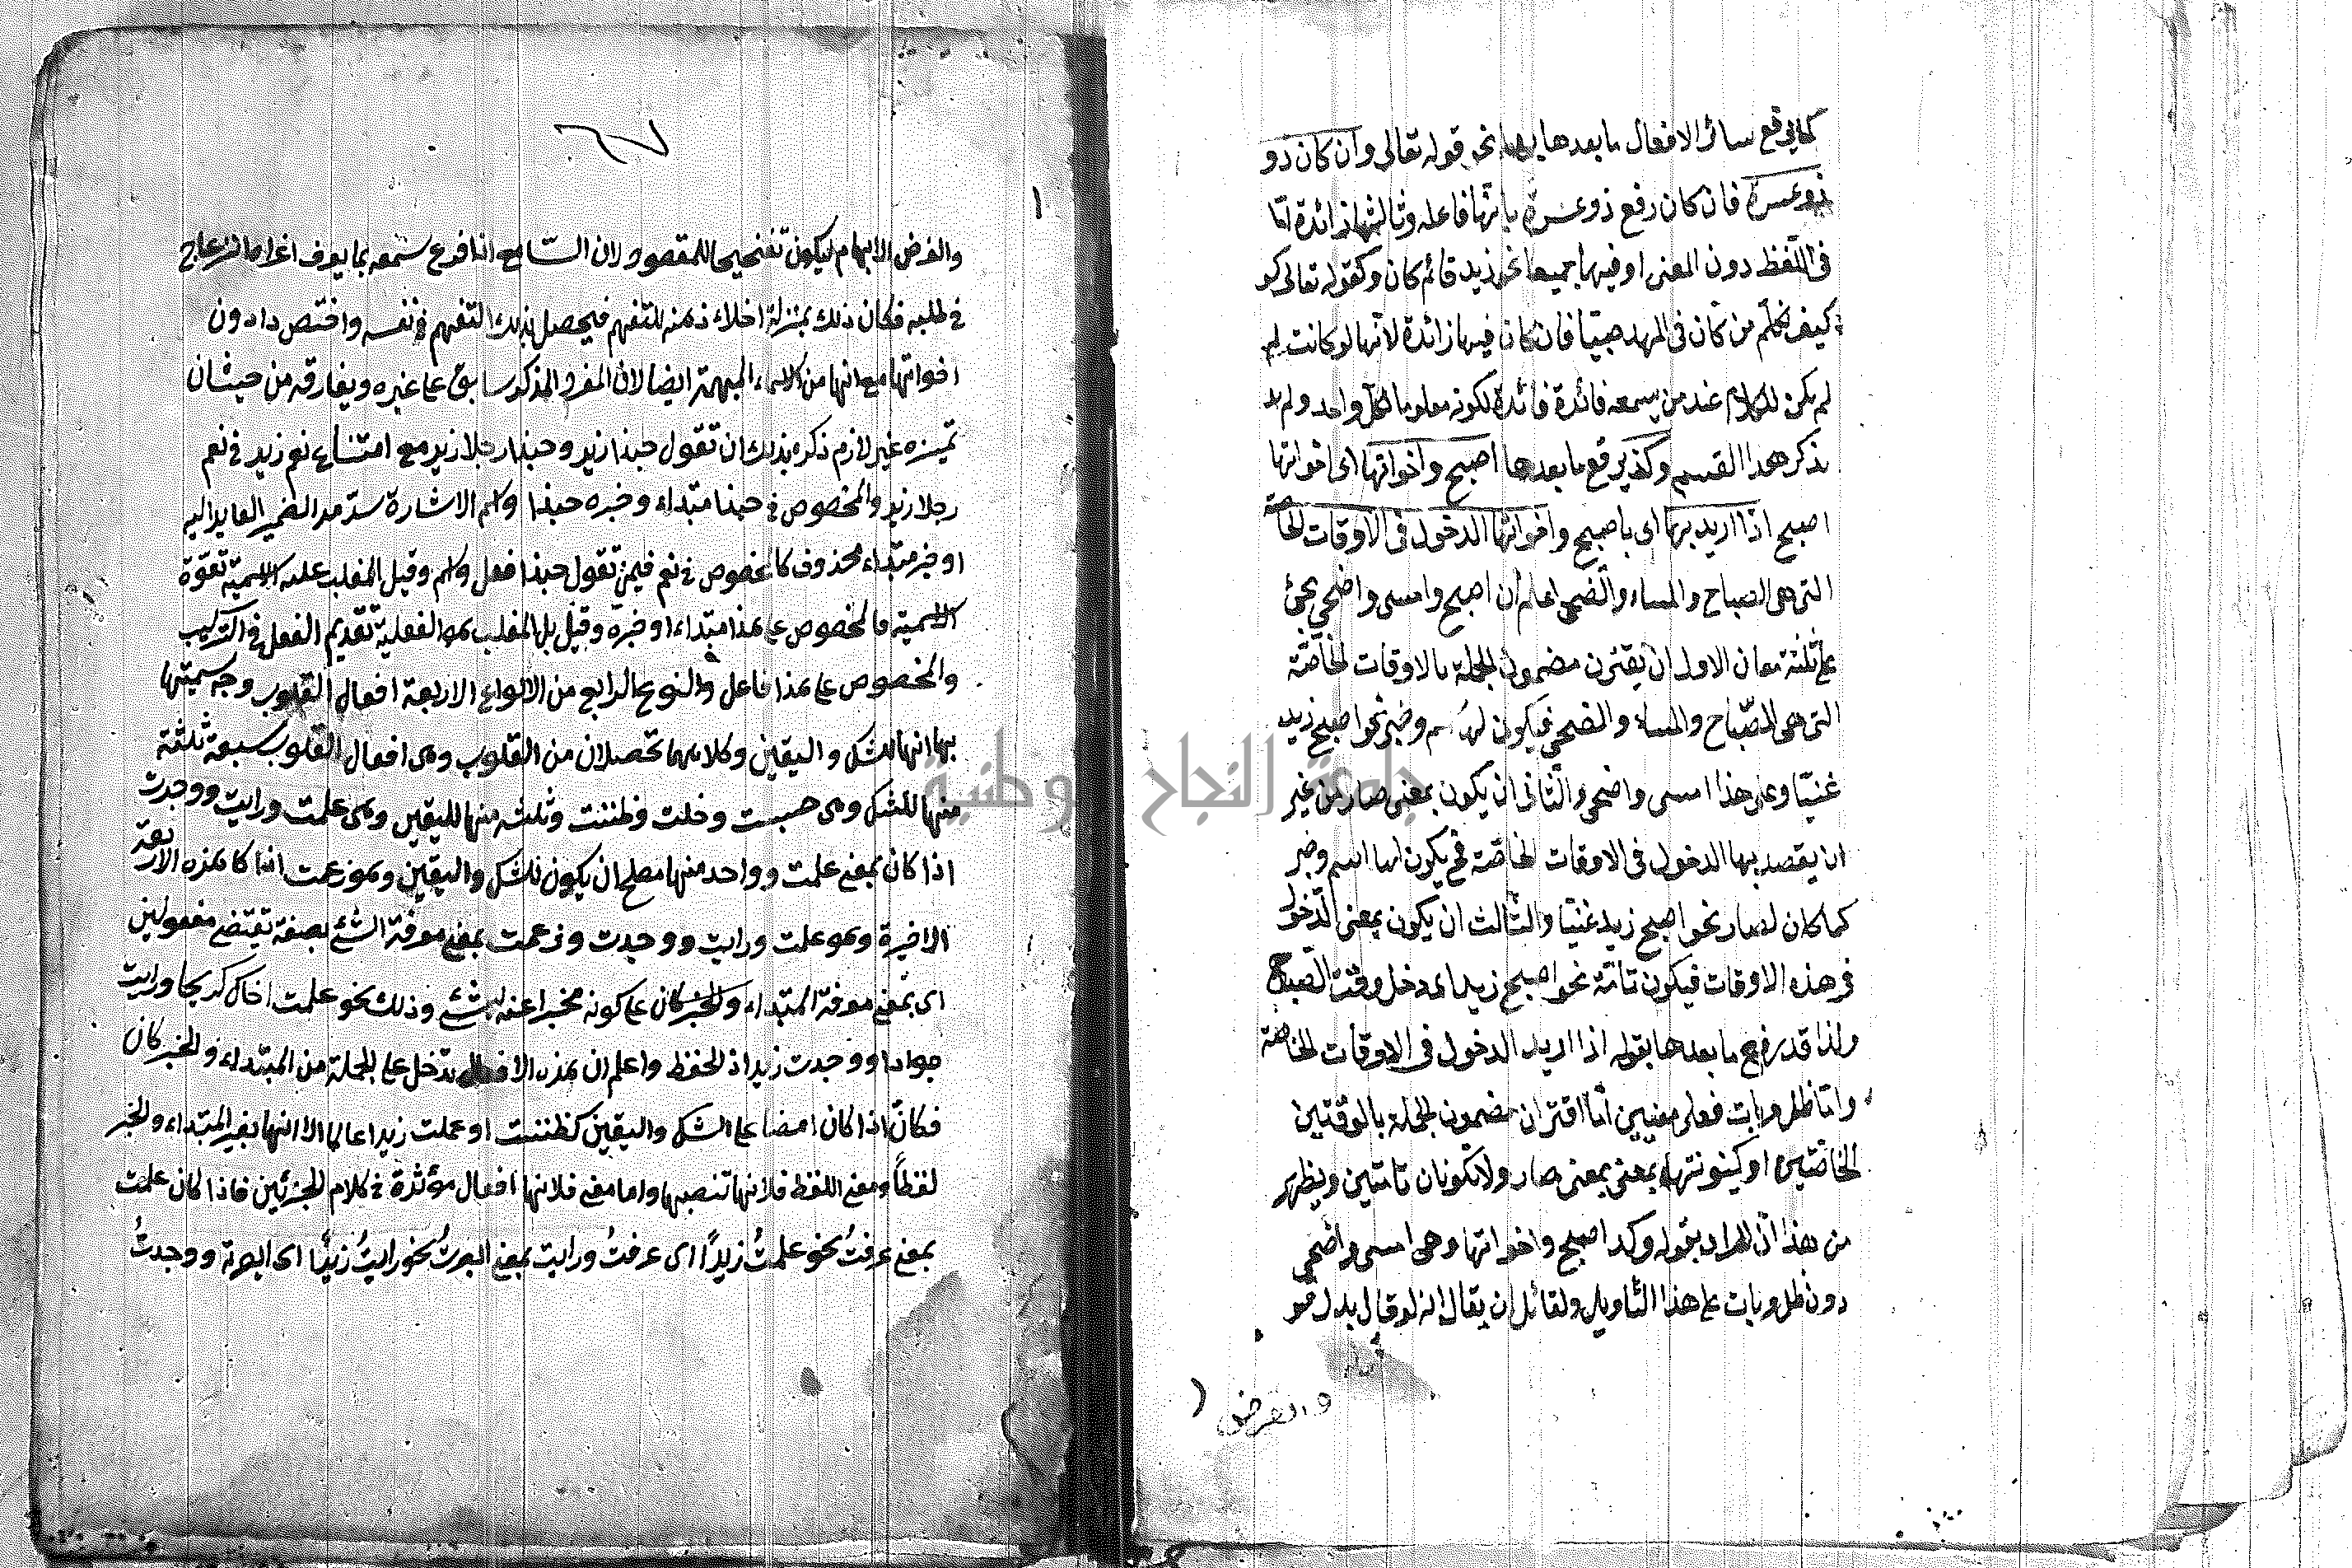 كما يرفع سائر الافعال ما بعدها بها نحو قوله تعالى وان كان ذو
ذو عسرة فان كان رفع ذو عسرة بانها فاعله وثالثها زائدة اما
فى اللفظ دون المعنى او فيها جميعا نحو زيد قائم كان وكقوله تعالى كو
كيف نكلم من كان فى المهد صبيا فان كان فيها زائدة لانها لو كانت لم
لم يكن للكلام عند من يسمعه فائدة فائدة لكونه معلوما لكل واحد ولم
يذكر هذا القسم وكذ يرفع ما بعدها اصبح واخواتها اى اخواتها
اصبح اذا اريد بها اى باصبح واخواتها الدخول فى الاوقات الخاصة
التى هى الصباح والمساء والضحى اعلم ان اصبح وامسى واضحى يجئ
على ثلثة معان الاول ان يقترن مضمون الجملة بالاوقات الخاصة
التى هى الصباح والمساء والضحى فيكون لها اسم وخبر نحو اصبح زيد
غنيا وعلى هذا امسى واضحى والثانى ان يكون بمعنى صار من غير
ان يقصد بها الدخول فى الاوقات الخاصة فح يكون لها اسم وخبر
كما كان لصار نحو اصبح زيد غنيا والثالث ان يكون بمعنى الدخول
فى هذه الاوقات فيكون تامة نحو اصبح زيد اى دخل وقت الصباح
ولذا قد رفع ما بعدها بقوله اذا اريد الدخول فى الاوقات الخاصة
واما ظل وبات فعلى معنيين اما اقتران مضمون الجملة بالوقتين
الخاصتين او كينونتها بمعنى بمعنى صار ولا يكونان تامتين ويظهر
من هذا ان المراد بقوله وكذ اصبح واخواتها وهى امسى واضحى
دون ظل وبات على هذا التأويل ولقائل ان يقال انه لو قال بدل
والغرض
والغرض الابهام ليكون تفخيما للمقصود لان السامع اذا قرع سمعه بما يعرف
فى طلبه فكان ذلك بمنزلة اخلاء ذهنه للتفهم فيحصل بذلك التفهم فى نفسه واختص دا دون
اخواتها مع انها من الاسماء المبهمة ايضا لان المفرد المذكر سابق على غيره ويفارقه من حيث ان
تميزه غير لازم ذكره بذلك ان تقول حبذا زيد وحبذا رجلا زيد مع امتناع نعم زيد فى نعم
رجلا زيد والمخصوص فى حبذا مبتداء وخبره حبذا واسم الاشارة سد مسد الضمير العايد اليه
او خبر مبتداء محذوف كالمخصوص فى نعم فيمن تقول حبذا فعل واسم وقيل المغلب عليه الاسمية لقوة
الاسمية فالمخصوص على هذا مبتداء او خبره وقيل بل المغلب هو الفعلية لتقديم الفعل فى التركيب
والمخصوص على هذا فاعل والنوع الرابع من الانواع الاربعة افعال القلوب وجه تسميتها
بها انها للشك واليقين وكلاهما تحصلان من القلوب وهى افعال القلوب سبعة ثلثة
منها للشك وهى حسبت وخلت وظننت وثلثه منها لليقين وهى علمت ورايت ووجدت
اذا كان بمعنى علمت وواحد منها يصلح ان يكون للشك واليقين وهو زعمت اذا كا هذه الاربعة
الاخيرة وهو علمت ورايت ووجدت وزعمت بمعنى معرفة الشئ بصفة تقتضى مفعولين
اى بمعنى معرفة المبتداء والخبر كان على كونه مخبرا عنه بشئ وذلك نحو علمت اخاك كريما ورايت
جوادا ووجدت زيدا ذ الحفظ واعلم ان هذه الافعال تدخل على الجملة من المبتداء والخبر كان
فكان اذا كان امضا على الشك واليقين كظننت او علمت زيدا عالما الا انها تغير المبتداء والخبر
لفظا ومعنى اللفظ فلانها تنصبها واما معنى فلانها افعال مؤثرة فى كلام الجزئين فاذا كان علمت
بمعنى عرفتُ نحو علمتُ زيدًا اى عرفتُ ورايت بمعنى ابصرتُ نحو رايتُ زيدًا اى ابصرته ووجدتُ
جامعة النجاح الوطنية